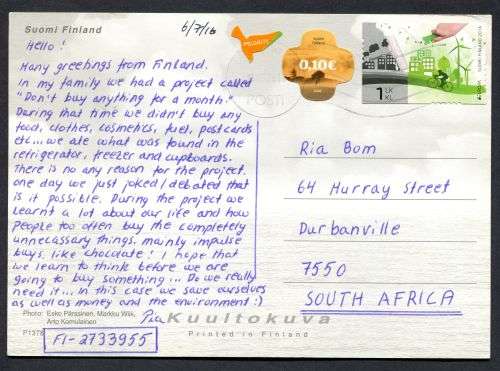 Suomi Finland
6/7/16
Hello!
Many greetings from Finland.
In my family we had a project called
"Don't buy anything for a month."
During that time we didn't buy any
food, clothes, cosmetics, fuel, postcards
etc... we ate what was found in the
refrigerator, freezer and cupboards.
There is no any reason for the project.
one day we just joked / debated that
is it possible. During the project we
learnt a lot about our life and how
people too often buy the completely
unnecassary things, mainly impulse
buys, like chocolate! I hope that
we learn to think before we are
going to buy something... Do we really
need it... In this case we save ourselves
as well as money and the environment :)
Pia
Photo: Esko Pärssinen, Markku Wiik,
Arto Komulainen
FI-2733955
Kuultokuva
Printed in Finland
PRIORITY
0.10€
POSTI
1 LK
KL
SUOMI FINLAND 2016
Ria Bom
64 Murray Street
Durbanville
7550
SOUTH AFRICA